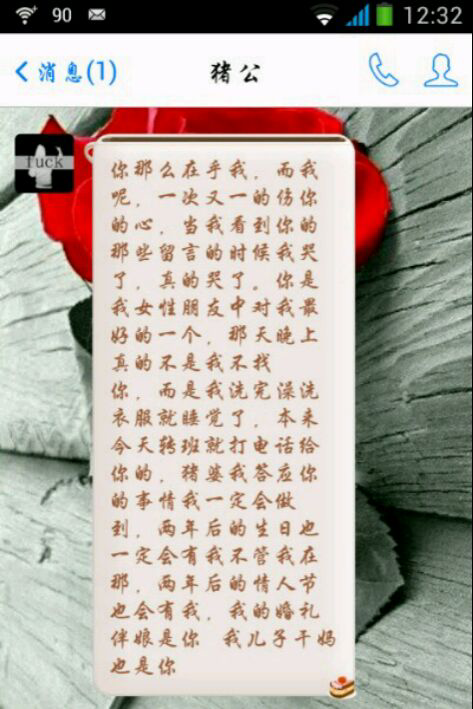 90 12:32
消息(1) 猪公
fuck
你那么在乎我，而我
呢，一次又一的伤你
的心，当我看到你的
那些留言的时候我哭
了，真的哭了。你是
我女性朋友中对我最
好的一个，那天晚上
真的不是我不找
你，而是我洗完澡洗
衣服就睡觉了，本来
今天转班就打电话给
你的，猪婆我答应你
的事情我一定会做
到，两年后的生日也
一定会有我不管我在
那，两年后的情人节
也会有我，我的婚礼
伴娘是你　我儿子干妈
也是你